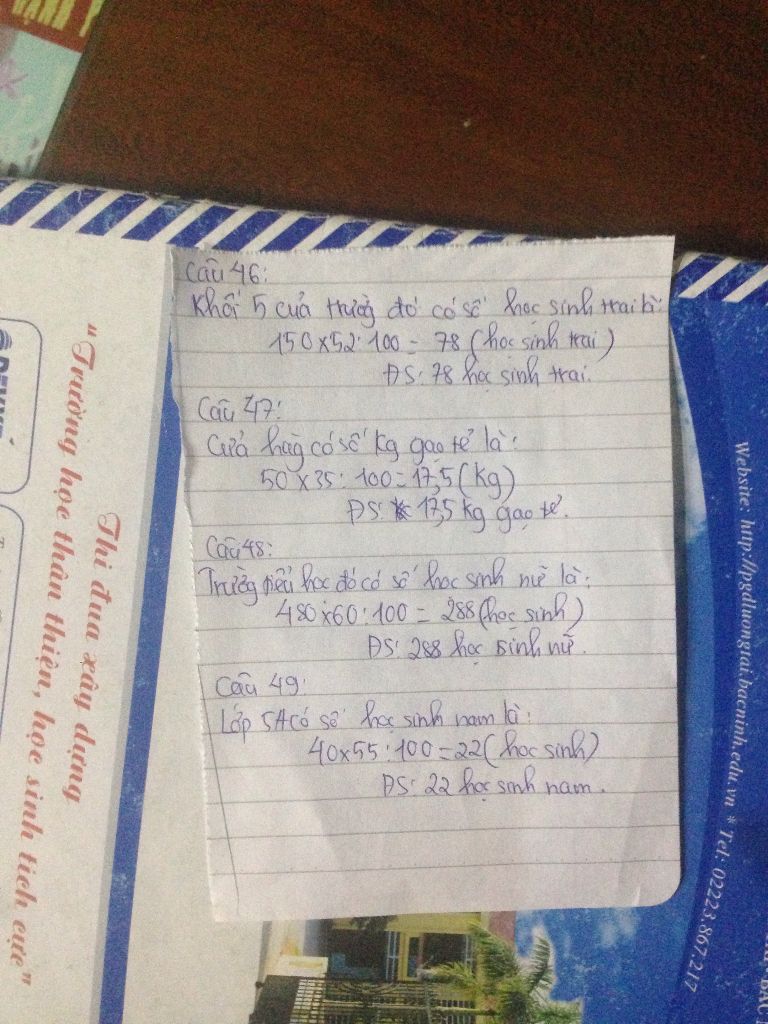 Câu 46:
Khối 5 của trường đó có số học sinh trai là:
150 x 52 : 100 = 78 (học sinh trai)
ĐS: 78 học sinh trai.
Câu 47:
Cửa hàng có số kg gạo tẻ là:
50 x 35 : 100 = 17,5 (kg)
ĐS: 17,5 kg gạo tẻ.
Câu 48:
Trường tiểu học đó có số học sinh nữ là:
480 x 60 : 100 = 288 (học sinh)
ĐS: 288 học sinh nữ.
Câu 49:
Lớp 5A có số học sinh nam là:
40 x 55 : 100 = 22 (học sinh)
ĐS: 22 học sinh nam.
Thi đua xây dựng
"Trường học thân thiện, học sinh tích cực"
Website: http://pgdluongtai.bacninh.edu.vn * Tel: 02223.867.217